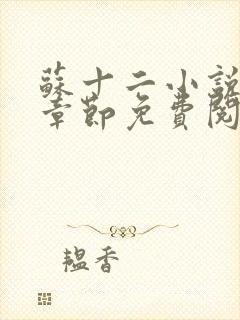 蘇十二小說
章節免費閱
韞香